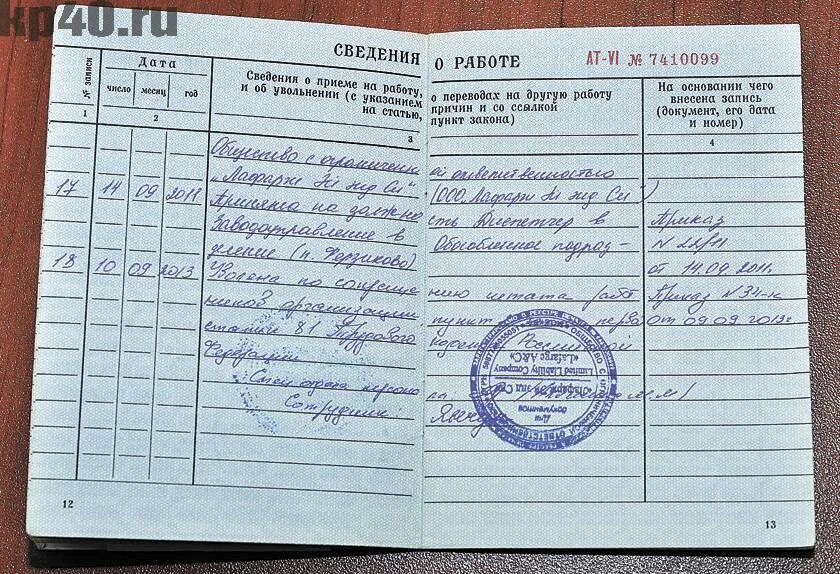 kp40.ru
СВЕДЕНИЯ О РАБОТЕ
АТ-VI № 7410099
№ записи
Дата
число месяц год
Сведения о приеме на работу, о переводах на другую работу
и об увольнении (с указанием причин и со ссылкой
на статью, пункт закона)
На основании чего
внесена запись
(документ, его дата
и номер)
1 2 3 4
Общество с ограниченной ответственностью
"Лафарж Эй энд Си" (ООО "Лафарж Эй энд Си")
17 14 09 2011 Принята на должность Диспетчер в Приказ
Заводоуправление в Обособленное подраз- N 22/11
деление (п. Ферзиково) от 14.09.2011г.
18 10 09 2013 Уволена по сокращению штата работ Приказ N 34-к
ников организации пункт от 09.09.2013г
статьи 81 Трудового Российской
Федерации
Сотрудник:
Limited Liability Company
«Lafarge A&C»
«Лафарж Эй энд Си»
Для
документов
12
13